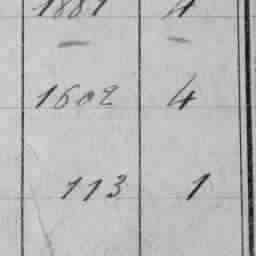 1881 4
— —
1602 4
113 1